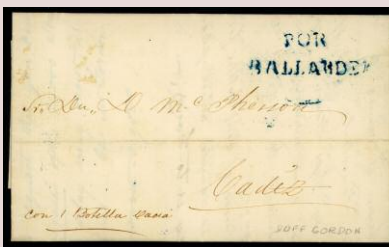 POR
BALLARDE
Sr. Dn. D. Mc. Pherson
Cadiz
con 1 Botella vacia
DUFF GORDON